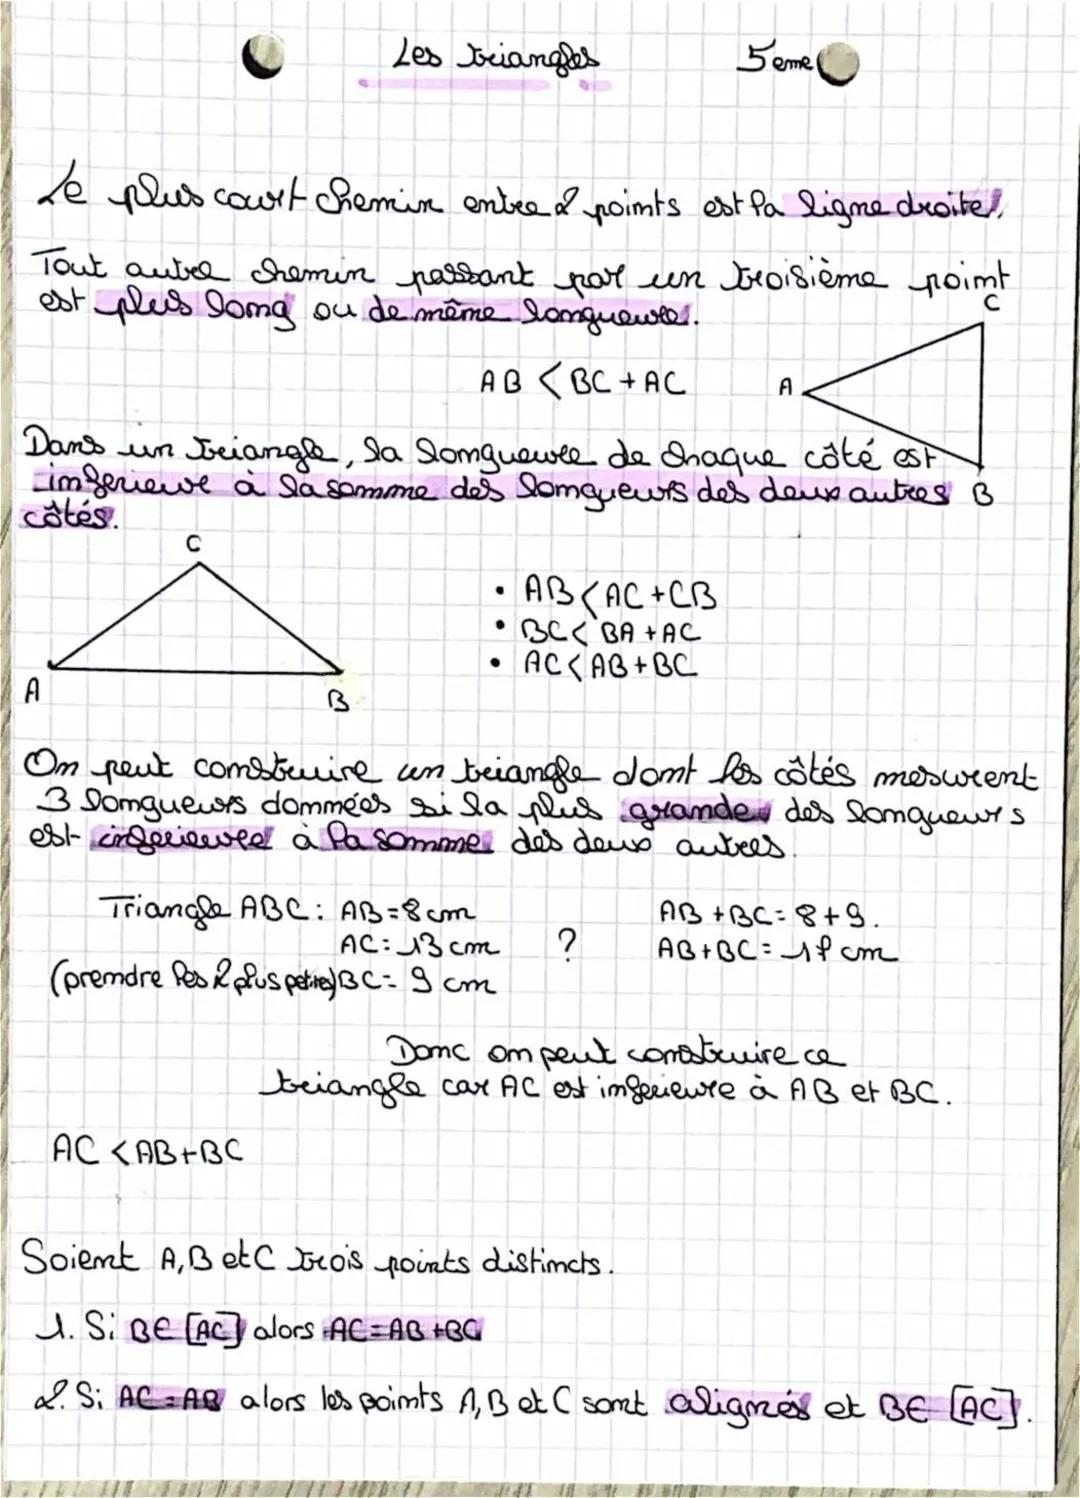 Les triangles 5eme
Le plus court chemin entre 2 points est la ligne droite.
Tout autre chemin passant par un troisième point
est plus long ou de même longueure.
C
AB < BC + AC
A
Dans un triangle, la longueure de chaque côté est
inferieure à la somme des longueurs des deux autres
B
côtés.
C
• AB < AC + CB
• BC < BA + AC
• AC < AB + BC
A
B
On peut construire un triangle dont les côtés mesurent
3 longueurs données si la plus grande des longueurs
est inferieure à la somme des deux autres.
Triangle ABC : AB = 8 cm AB + BC = 8 + 9.
AC = 13 cm ? AB + BC = 17 cm
(prendre les 2 plus petite) BC = 9 cm
Donc on peut construire ce
triangle car AC est inferieure à AB et BC.
AC < AB + BC
Soient A, B et C trois points distincts.
1. Si B ∈ [AC] alors AC = AB + BC
2. Si AC = AB alors les points A, B et C sont alignés et B ∈ [AC].